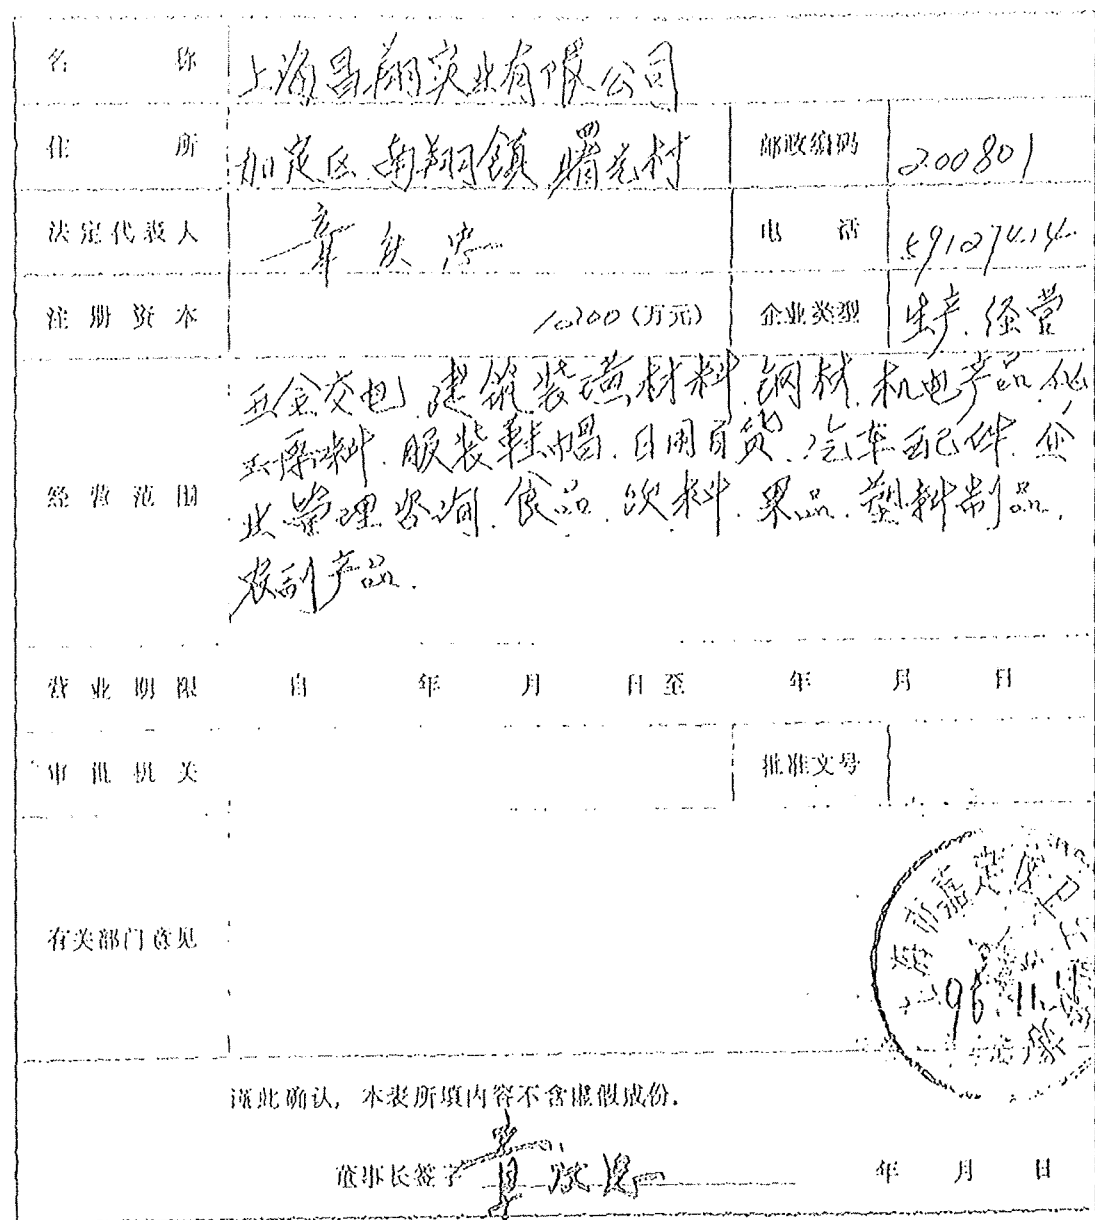 名 称 上海昌翔实业有限公司
住 所 加定区南翔镇曙光村 邮政编码 200801
法定代表人 章 电 话 59127414
注册资本 (万元) 企业类型 生产.经营
五金交电.建筑装潢材料.钢材.机电产品.化
工原料.服装鞋帽.日用百货.汽车配件.企
经营范围
业管理咨询.食品.饮料.果品.塑料制品.
农副产品.
营业期限 自 年 月 日至 年 月 日
审批机关 批准文号
上海市嘉定区卫生
有关部门意见
96.11.
谨此确认,本表所填内容不含虚假成份.
董事长签字 章 年 月 日